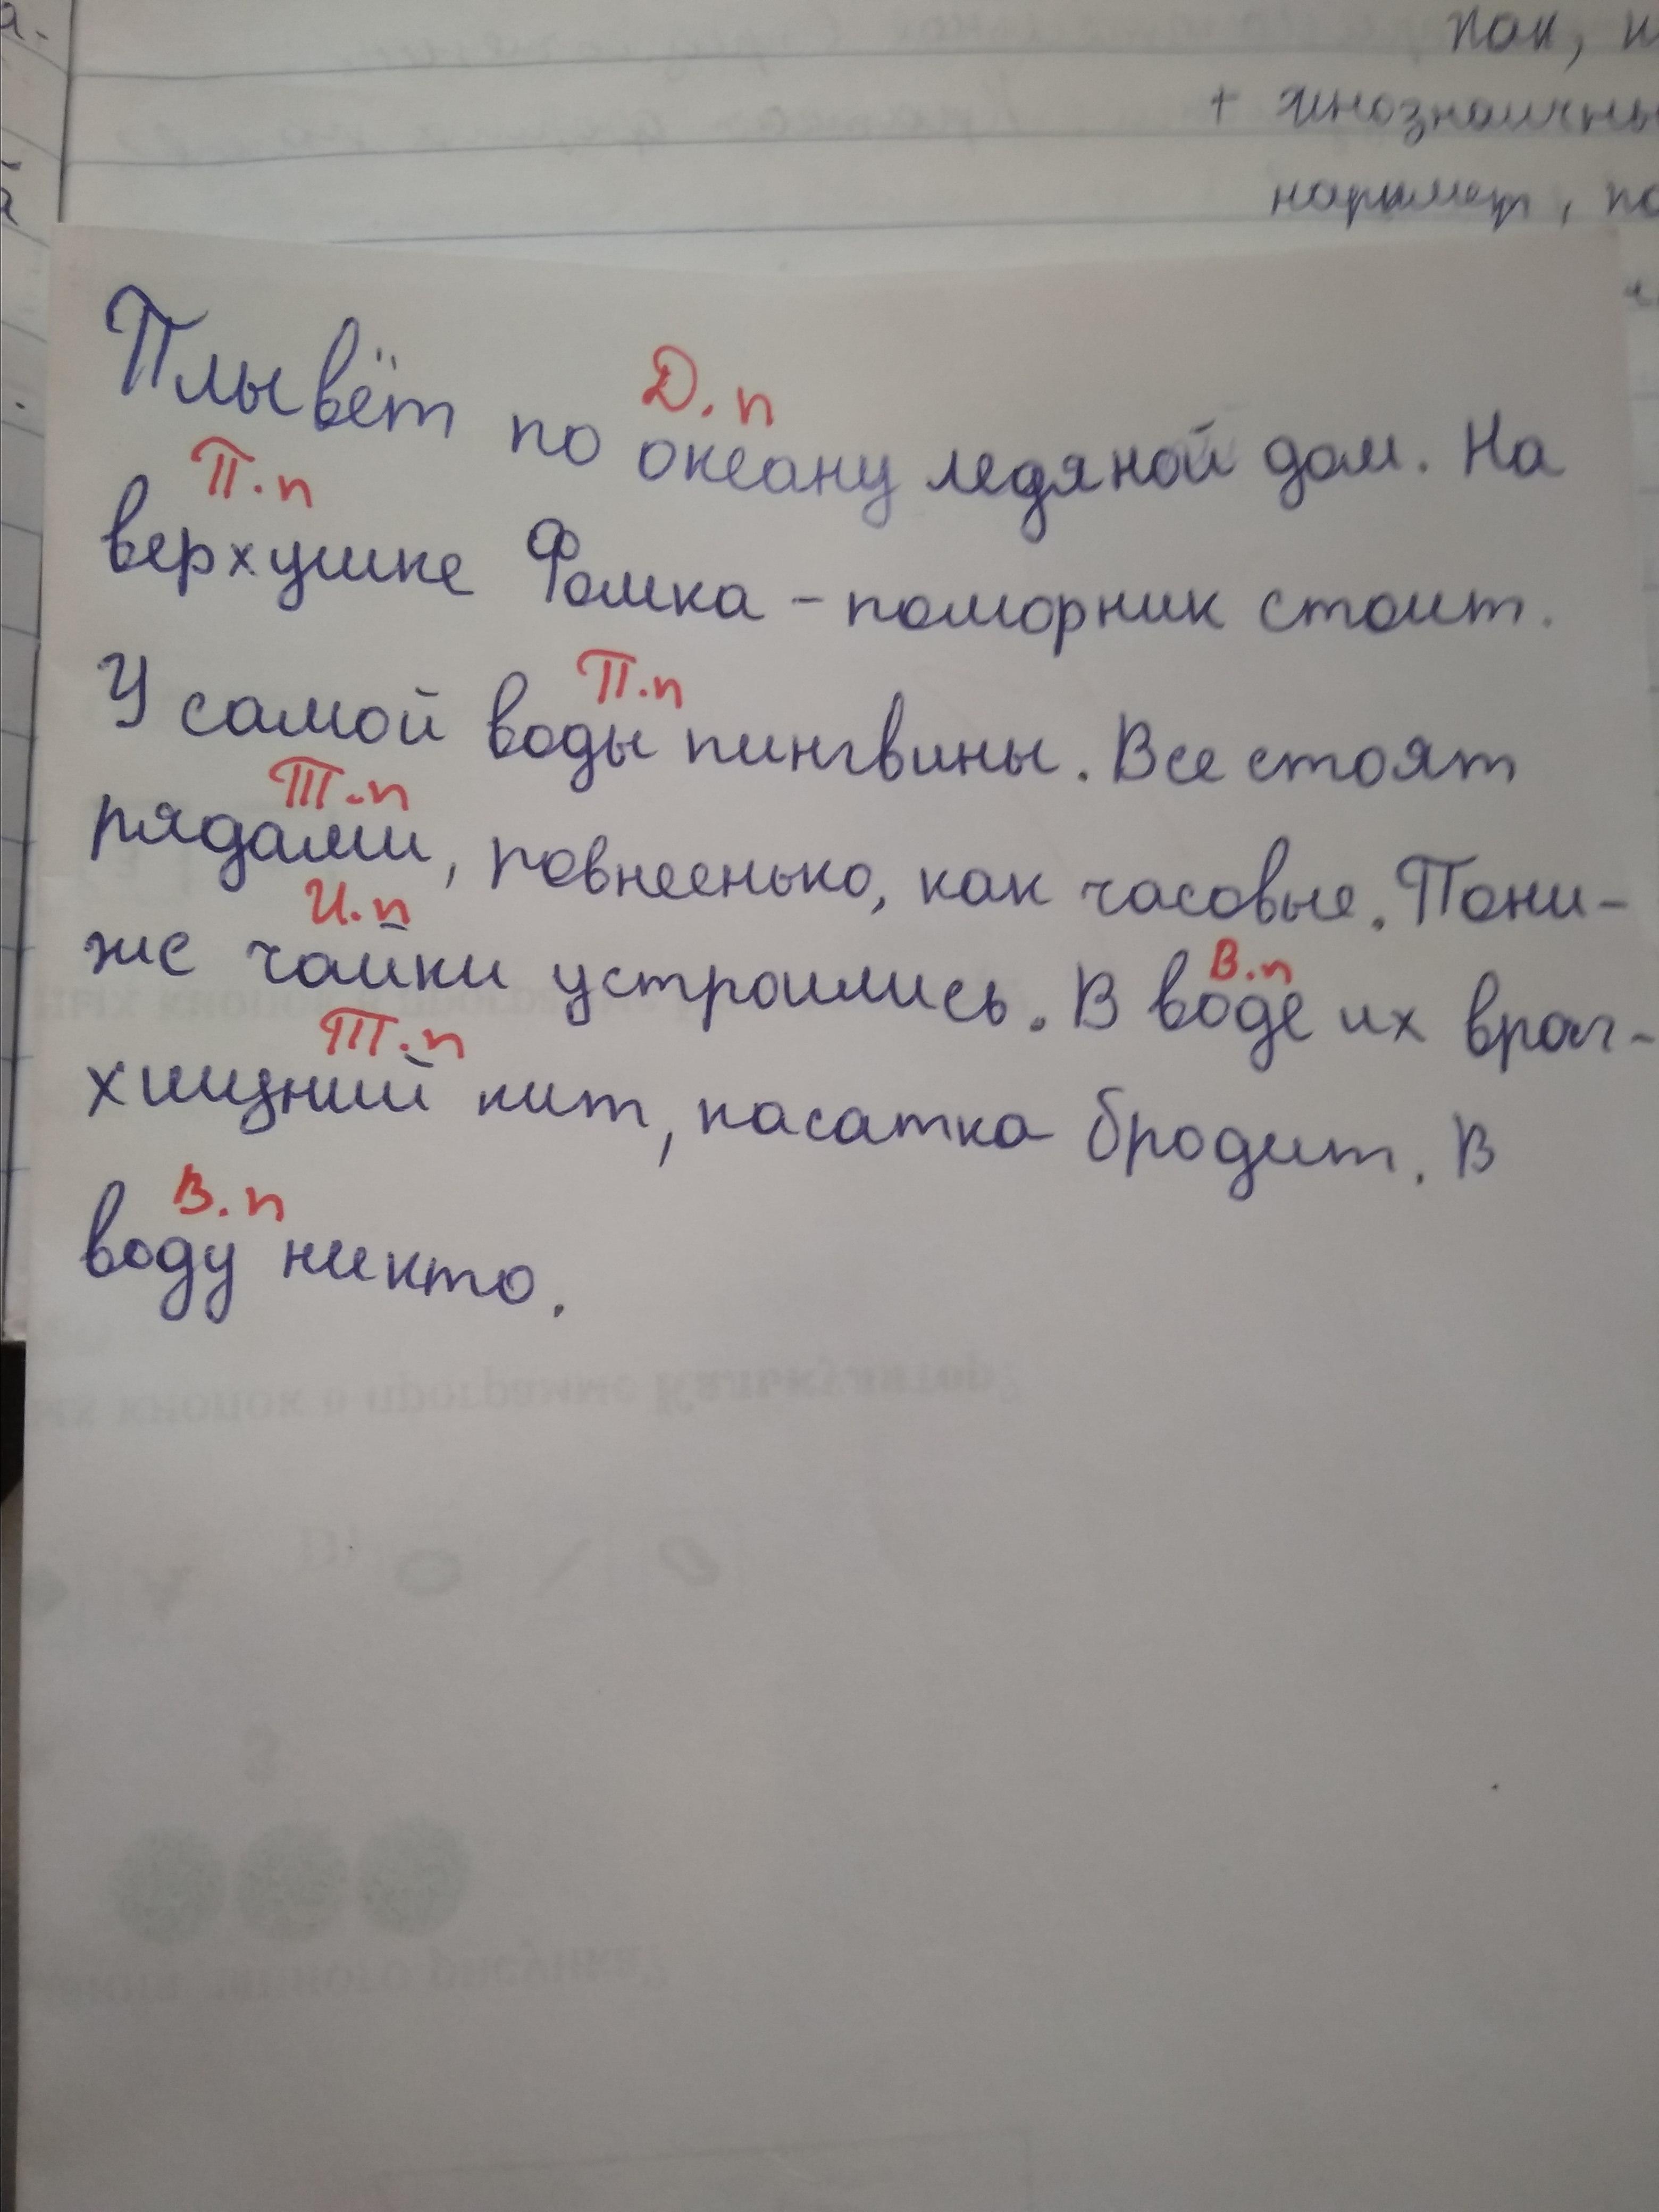 а.
так, и
+ тнозначны
й
Плывёт по океану ледяной дом. На
Д. п
П. п
верхушке Фомка - поморник стоит.
П. п
У самой воды пингвины. Все стоят
Т. п
рядами, ровнеенько, как часовые. Пони-
И. п
же чайки устроились. В воде их враг -
В. п
Т. п
хищний кит, касатка бродит. В
В. п
воду никто.